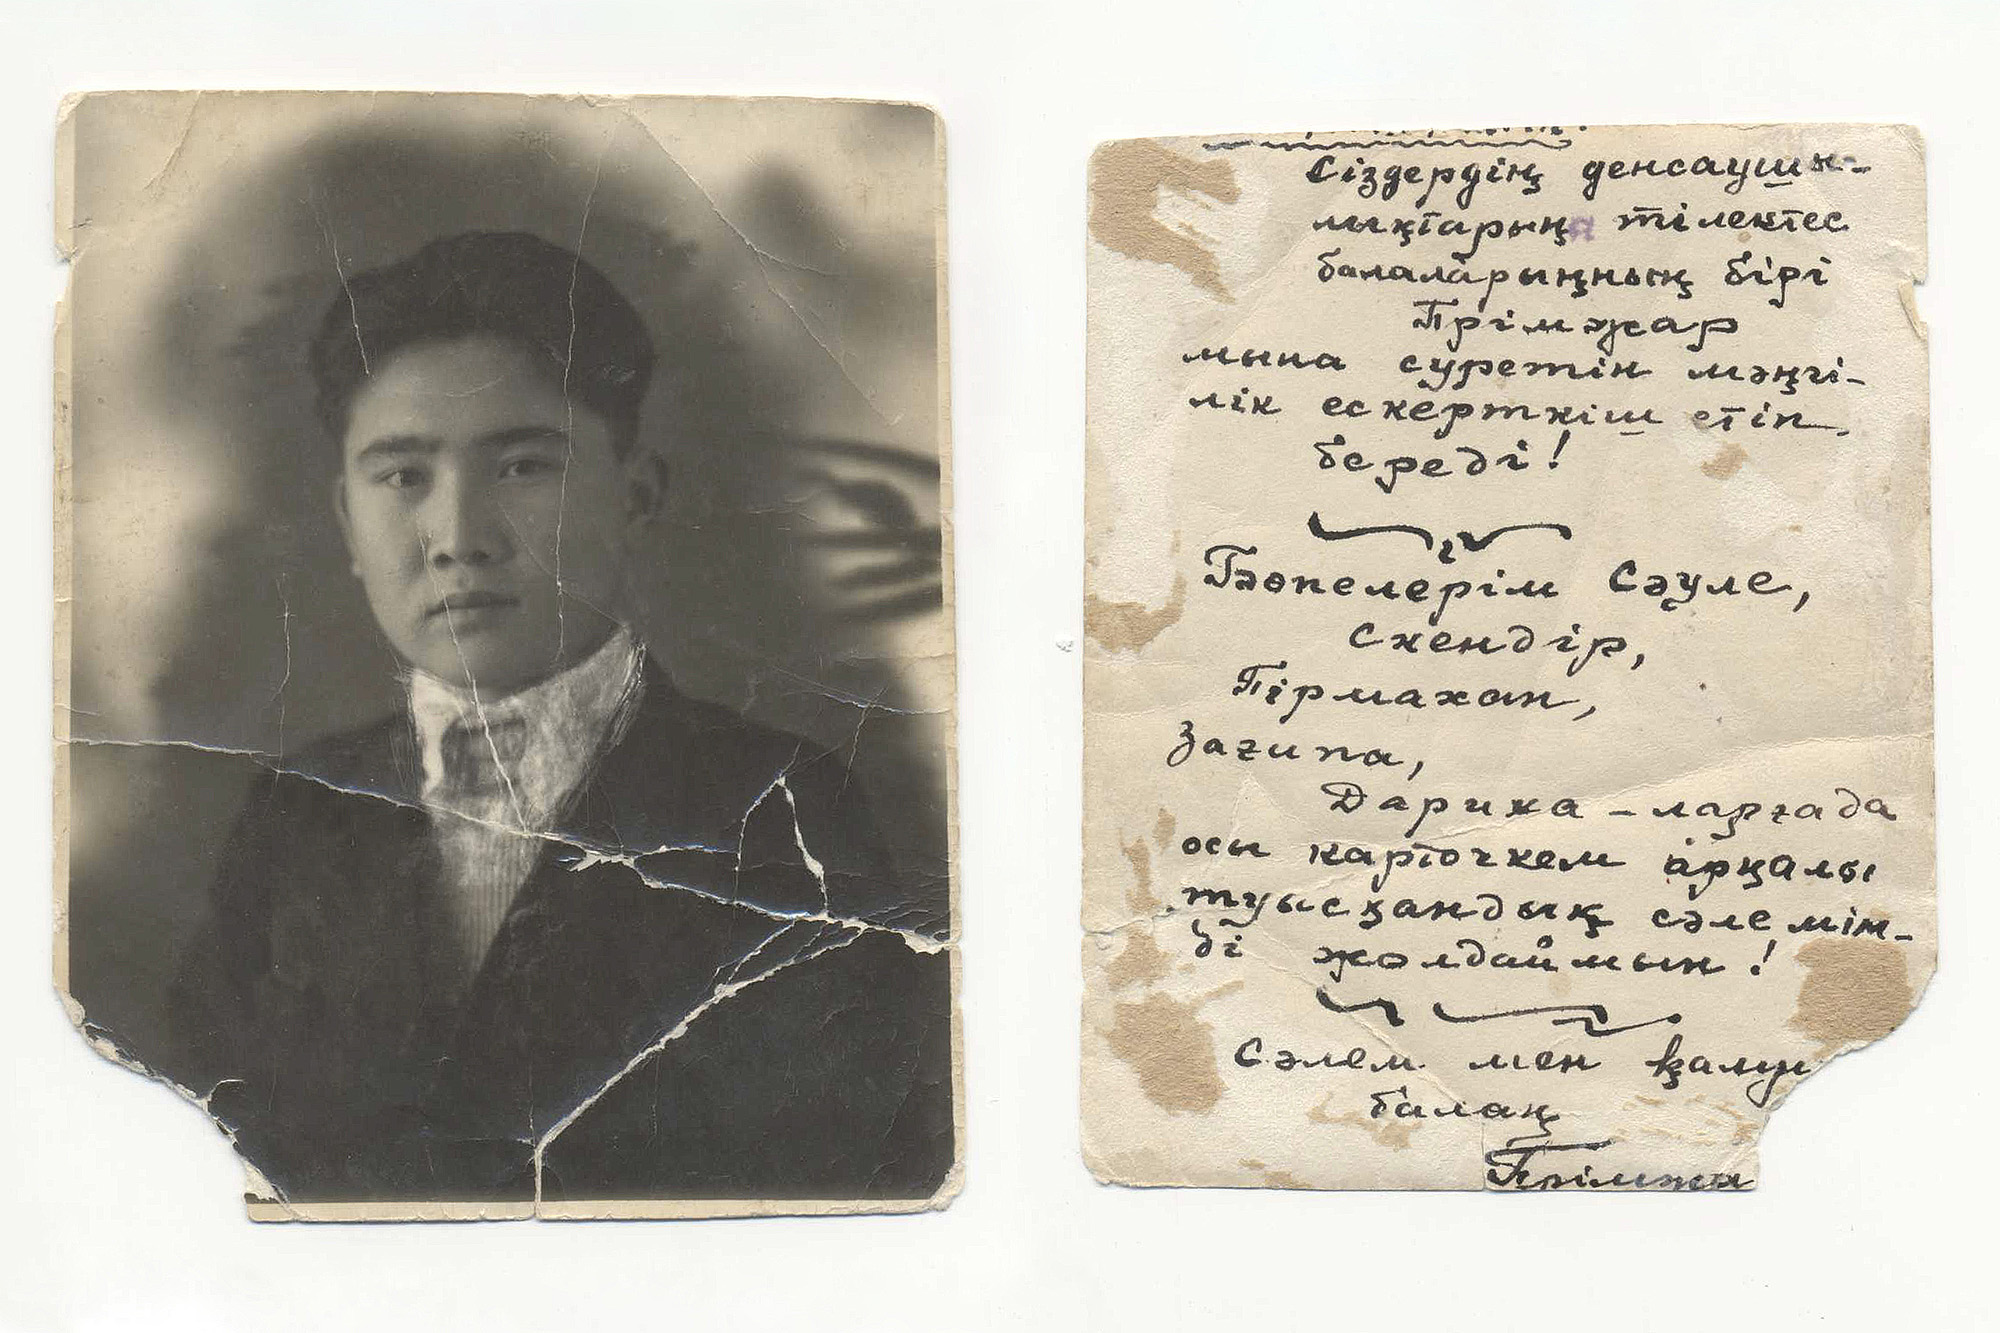 Сіздердің денсаушы-
лықтарың тілектес
балаларыңның бірі
Прімжар
мына суретін мәңгі-
лік ескерткіш етіп
береді!
Бөпелерім Сәуле,
Скендір,
Пірмахан,
Загипа,
Дарика-ларғада
осы карточкем арқалы
туысқандық сәлемім-
ді жолдаймын!
Сәлем мен қалушы
балаң